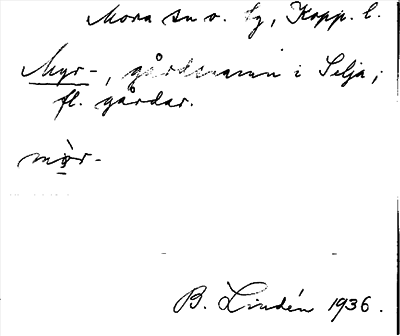 Mora sn o. tg, Kopp. l.
Myr-, gårdsnamn i Selja;
fl. gårdar.
mòr-
B. Lindén 1936.